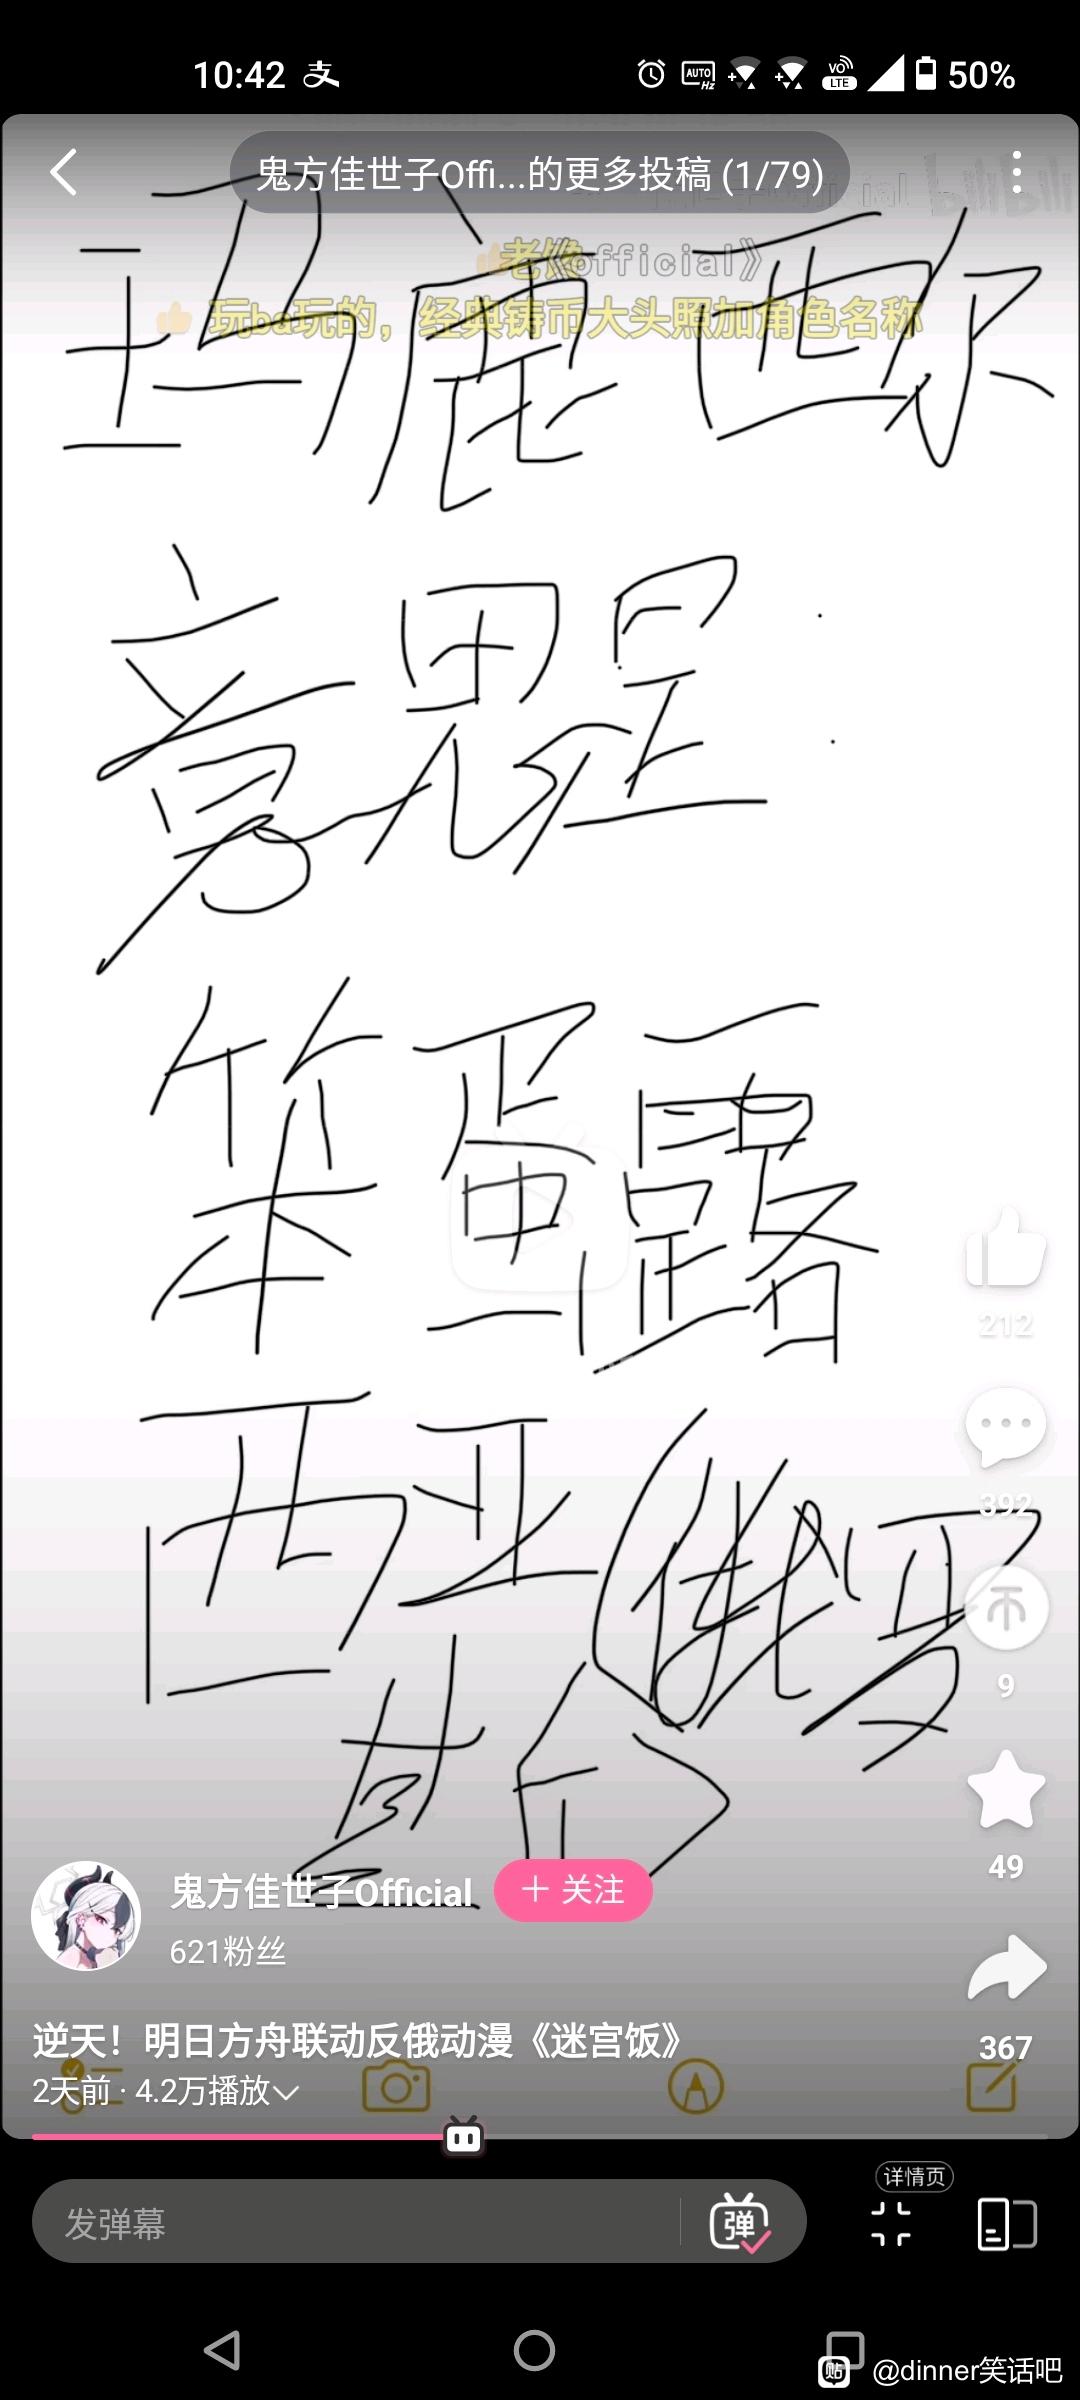 10:42 支
AUTO Hz VO LTE 50%
鬼方佳世子Offi...的更多投稿 (1/79)
bilibili
老馋《official》
玩ba玩的，经典铸币大头照加角色名称
玛鹿西尔
意思是：
笨蛋露
西亚(俄罗
斯)
212
392
9
49
367
鬼方佳世子Official
+ 关注
621粉丝
逆天！明日方舟联动反俄动漫《迷宫饭》
2天前 · 4.2万播放
详情页
发弹幕
弹
贴 @dinner笑话吧